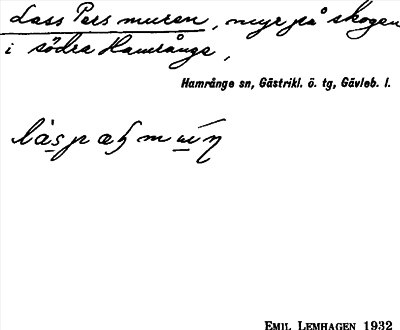 Lass Pers muren, myr på skogen
i södra Hamrånge,
Hamrånge sn, Gästrikl. ö. tg, Gävleb. l.
EMIL LEMHAGEN 1932